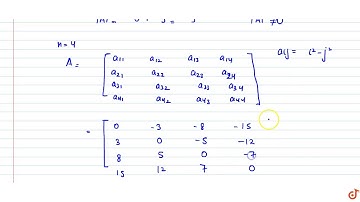 |A| ≠ 0
n = 4
A = [ a11 a12 a13 a14
a21 a22 a23 a24
a31 a32 a33 a34
a41 a42 a43 a44 ]
aij = i²-j²
= [ 0 -3 -8 -15
3 0 -5 -12
8 5 0 -7
15 12 7 0